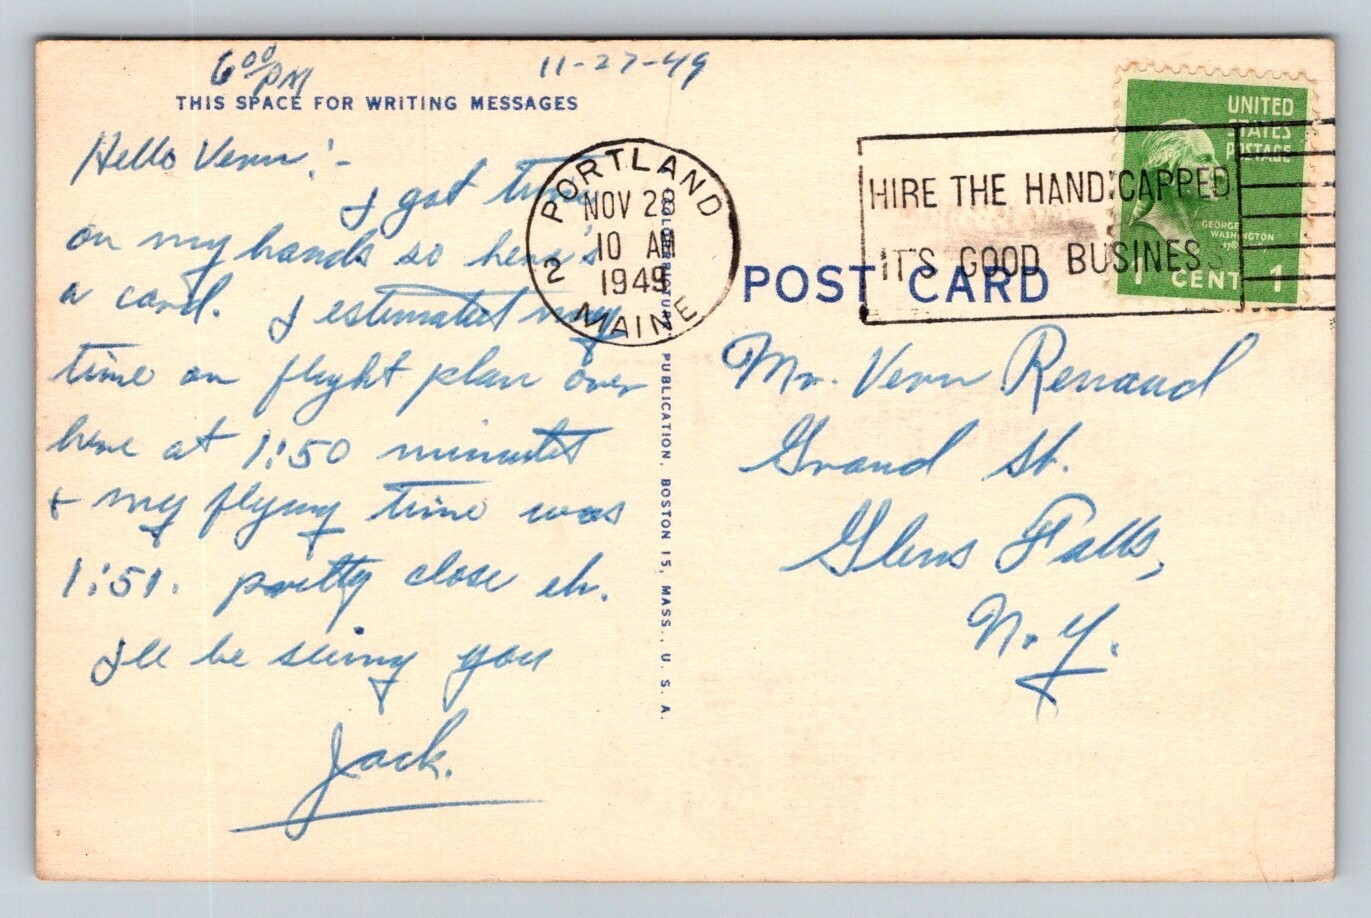 6⁰⁰ PM
11-27-49
THIS SPACE FOR WRITING MESSAGES
Hello Vern!-
I got time
on my hands so here's
a card. I estimated my
time on flight plan over
here at 1:50 minutes
+ my flying time was
1:51. pretty close eh.
I'll be seeing you
Jack.
PORTLAND
NOV 28
10 AM
1949
2
MAINE
HIRE THE HANDICAPPED
IT'S GOOD BUSINESS
UNITED
STATES
POSTAGE
GEORGE
WASHINGTON
1 CENT 1
POST CARD
COLOURPICTURE PUBLICATION, BOSTON 15, MASS., U. S. A.
Mr. Vern Renaud
Grand St.
Glens Falls,
N.Y.